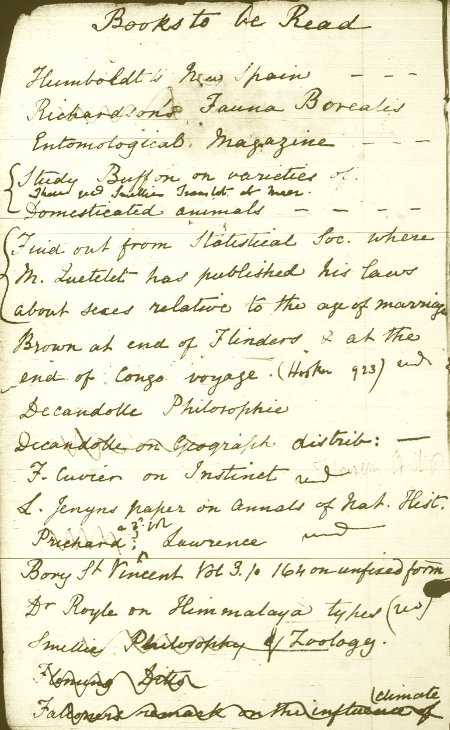 Books to be Read
Humboldt's New Spain — — —
Richardson's Fauna Borealis
Entomological Magazine — — —
Study Buffon on varieties of
Domesticated animals — — — —
Find out from Statistical Soc. where
M. Quetelet has published his laws
about sexes relative to the age of marriage
Brown at end of Flinders & at the
end of Congo voyage. (Hooker 923) read
Decandolle Philosophie
Decandolle on Geograph distrib: —
F. Cuvier on Instinct read
L. Jenyns paper on Annals of Nat. Hist.
Prichard; Lawrence read
Bory St Vincent Vol 3. p 164 on unfixed form
Dr Royle on Himmalaya types (read)
Smellie Philosophy of Zoology.
Fleming Ditto
Falconers remark on the influence of
climate